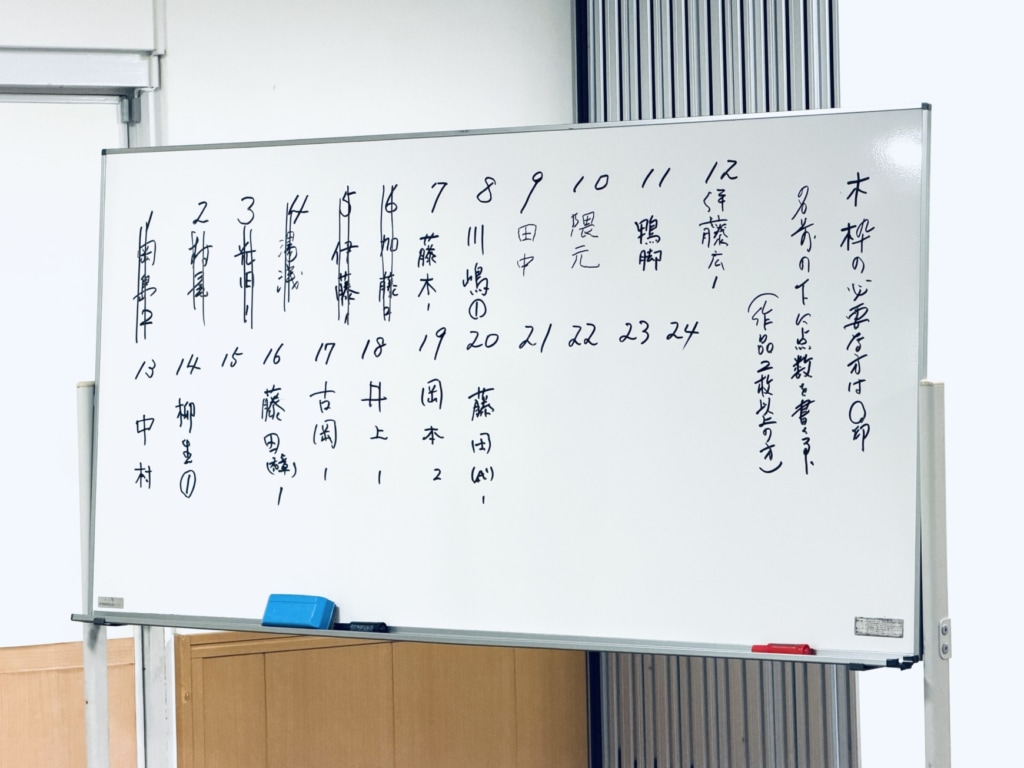 木枠の必要な方は○印
名前の下に点数を書く事
(作品2枚以上の方)
1
2 村尾
3
4 湯浅
5 伊藤 1
6 加藤
7 藤木 1
8 川嶋 ①
9 田中
10 隈元
11 鴨脚
12 伊藤広 1
13 中村
14 柳生 ①
15
16 藤田 1
17 古岡 1
18 井上 1
19 岡本 2
20 藤田 1
21
22
23
24